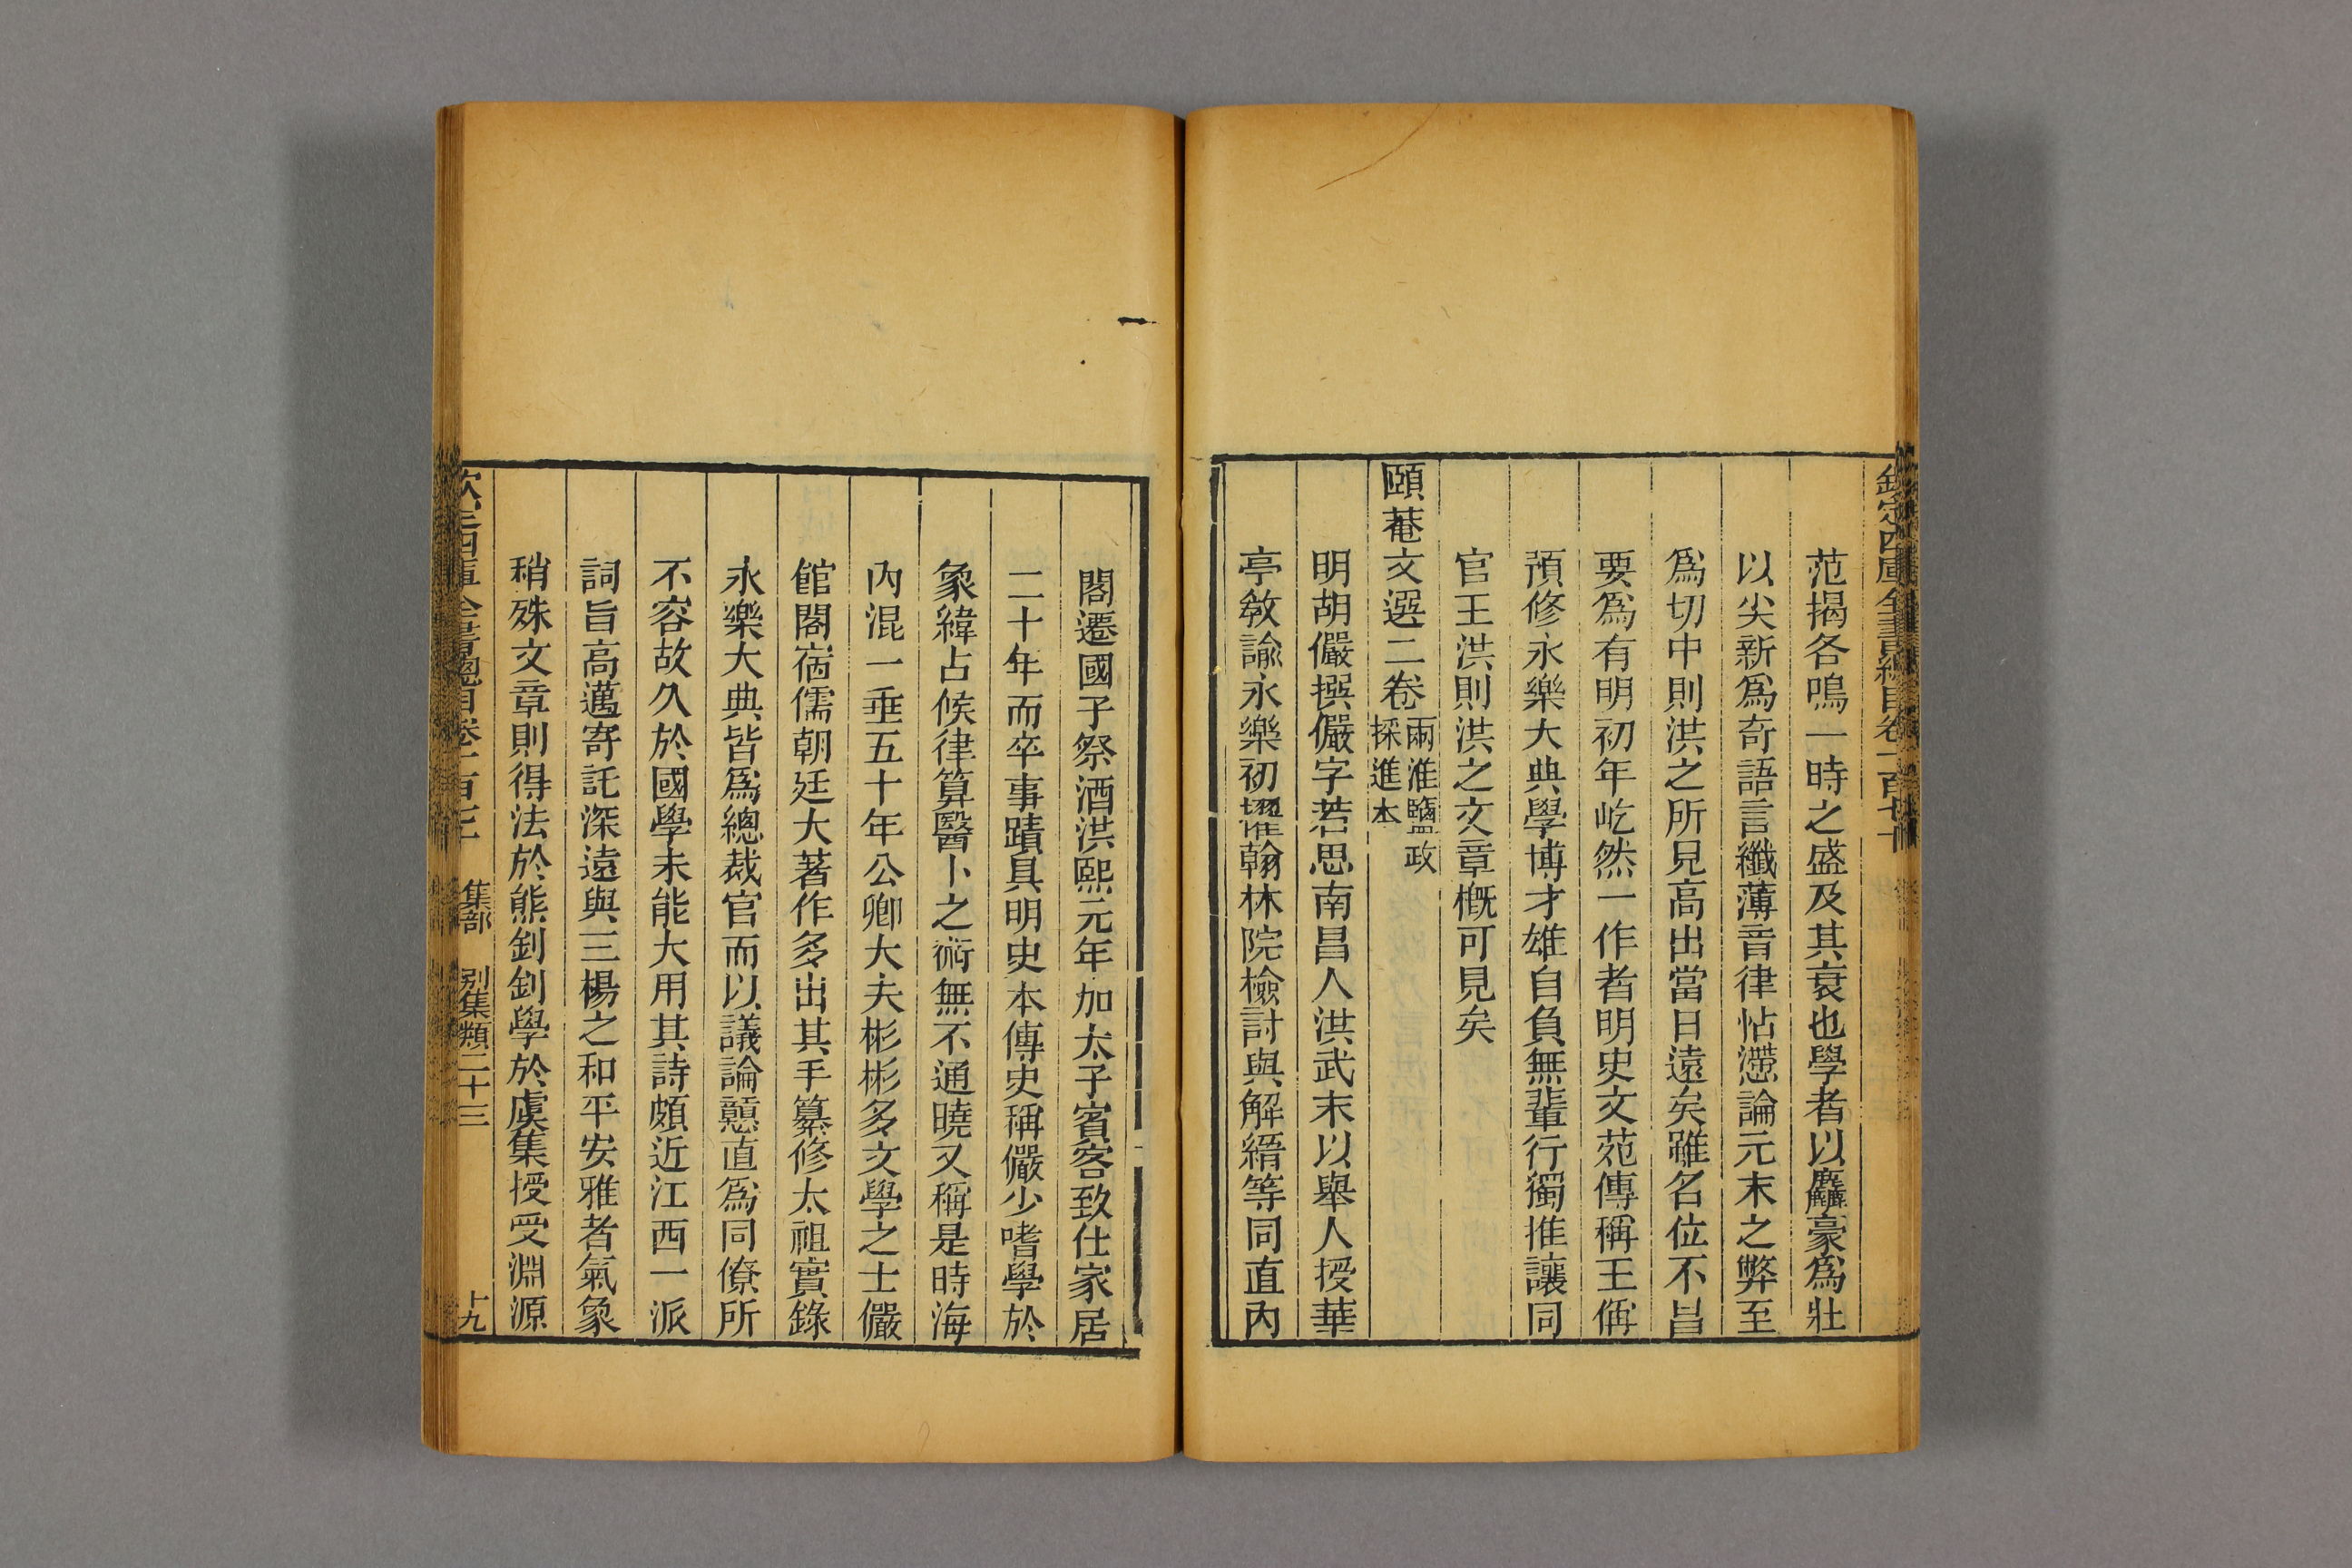 范揭各鳴一時之盛及其衰也學者以麤豪爲壯
以尖新爲奇語言纖薄音律怗懘論元末之弊至
爲切中則洪之所見高出當日遠矣雖名位不昌
要爲有明初年屹然一作者明史文苑傳稱王偁
預修永樂大典學博才雄自負無輩行獨推讓同
官王洪則洪之文章概可見矣
頤菴文選二卷
兩淮鹽政
採進本
明胡儼撰儼字若思南昌人洪武末以舉人授華
亭敎諭永樂初擢翰林院檢討與解縉等同直內
閣遷國子祭酒洪熙元年加太子賓客致仕家居
二十年而卒事蹟具明史本傳史稱儼少嗜學於
象緯占候律算醫卜之術無不通曉又稱是時海
內混一垂五十年公卿大夫彬彬多文學之士儼
館閣宿儒朝廷大著作多出其手纂修太祖實錄
永樂大典皆爲總裁官而以議論戇直爲同僚所
不容故久於國學未能大用其詩頗近江西一派
詞旨高邁寄託深遠與三楊之和平安雅者氣象
稍殊文章則得法於熊釗釗學於虞集授受淵源
集部
別集類二十三
十九